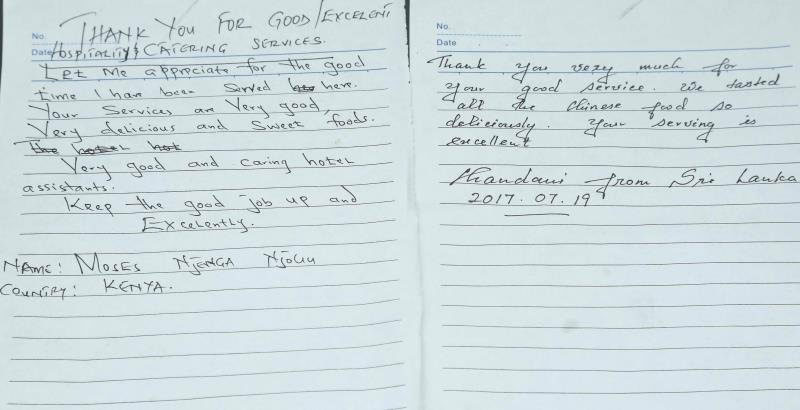 THANK YOU FOR GOOD/EXCELENT
No.
Date HOSPITALITY & CATERING SERVICES.
Let Me appreciate for the good
time I have been Served here.
Your Services are Very good,
Very delicious and Sweet foods.
The hotel hot
Very good and caring hotel
assistants.
Keep the good job up and
Excelently.
NAME: MOSES NJENGA NJOGU
COUNTRY: KENYA.
No.
Date
Thank you very much for
your good service. We tasted
all the Chinese food so
deliciously. Your serving is
excellent
from Sri Lanka
2017.07.19